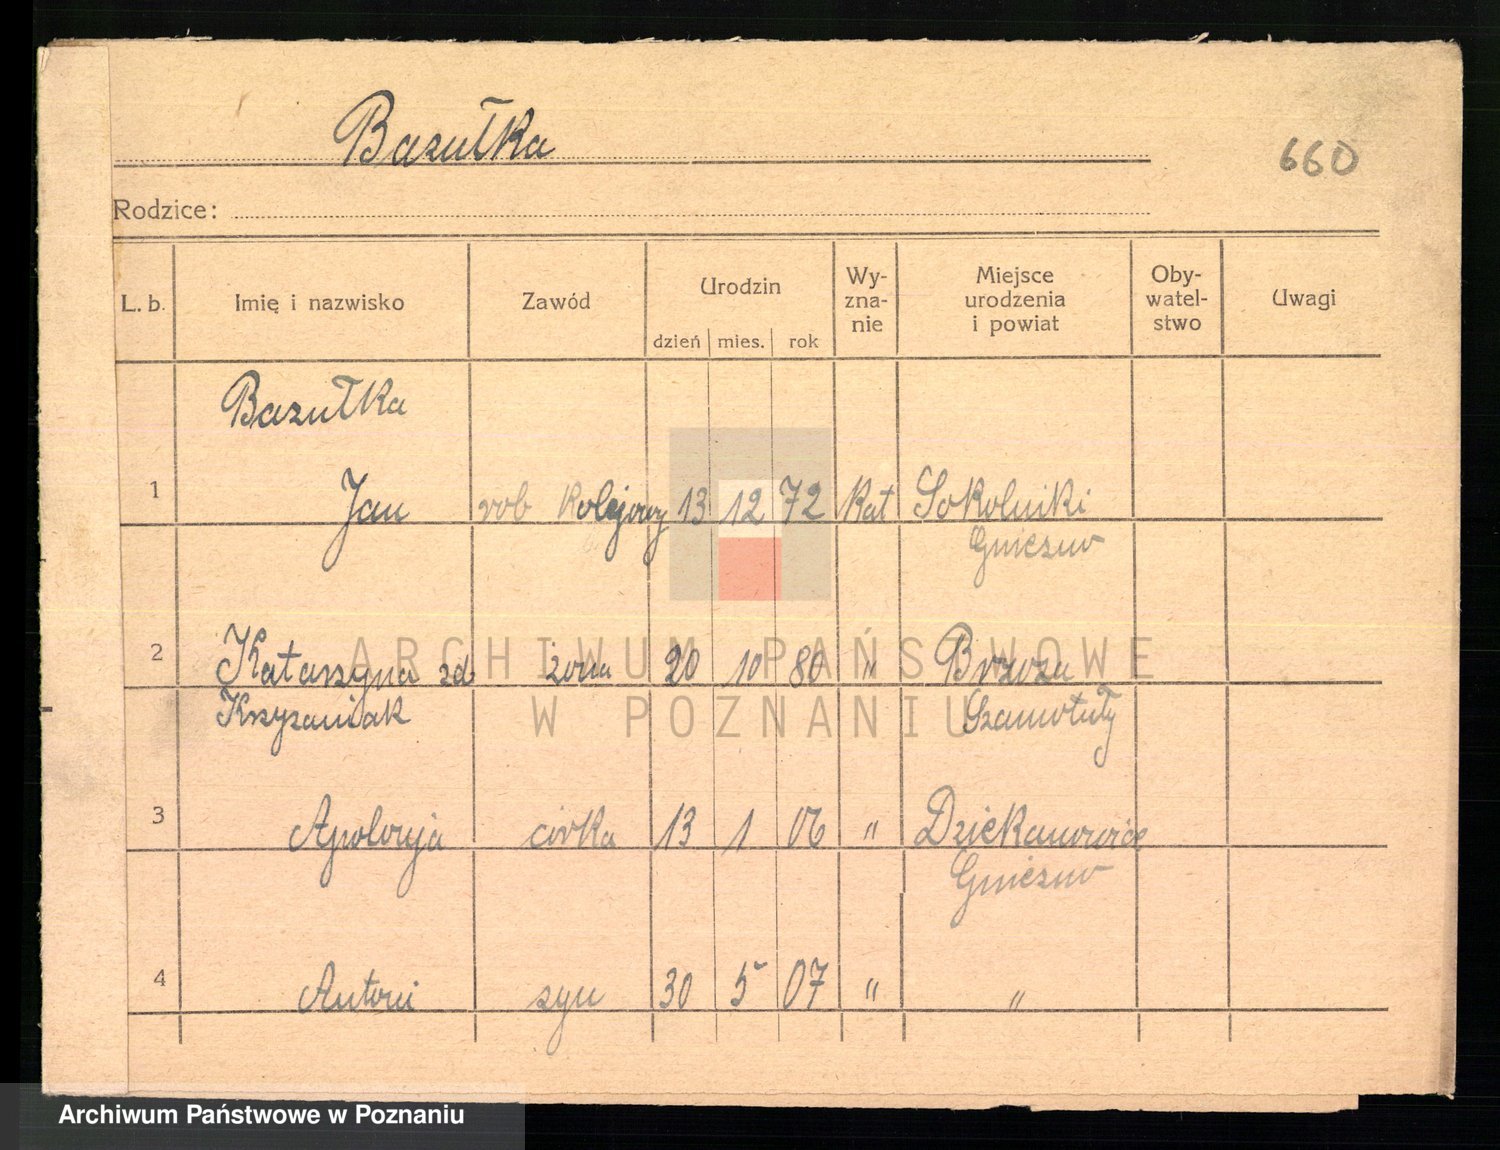 Bazułka
660
Rodzice:
L. b. Imię i nazwisko Zawód Urodzin dzień mies. rok Wy-zna-nie Miejsce urodzenia i powiat Oby-watel-stwo Uwagi
Bazułka
1 Jan rob kolejowy 13 12 72 kat Sokolniki
Gniezno
2 Katarzyna zd. żona 20 10 80 " Brzoza
Krzyżaniak Szamotuły
3 Apolonja córka 13 1 06 " Dziekanowice
Gniezno
4 Antoni syn 30 5 07 " "
ARCHIWUM PAŃSTWOWE
W POZNANIU
Archiwum Państwowe w Poznaniu